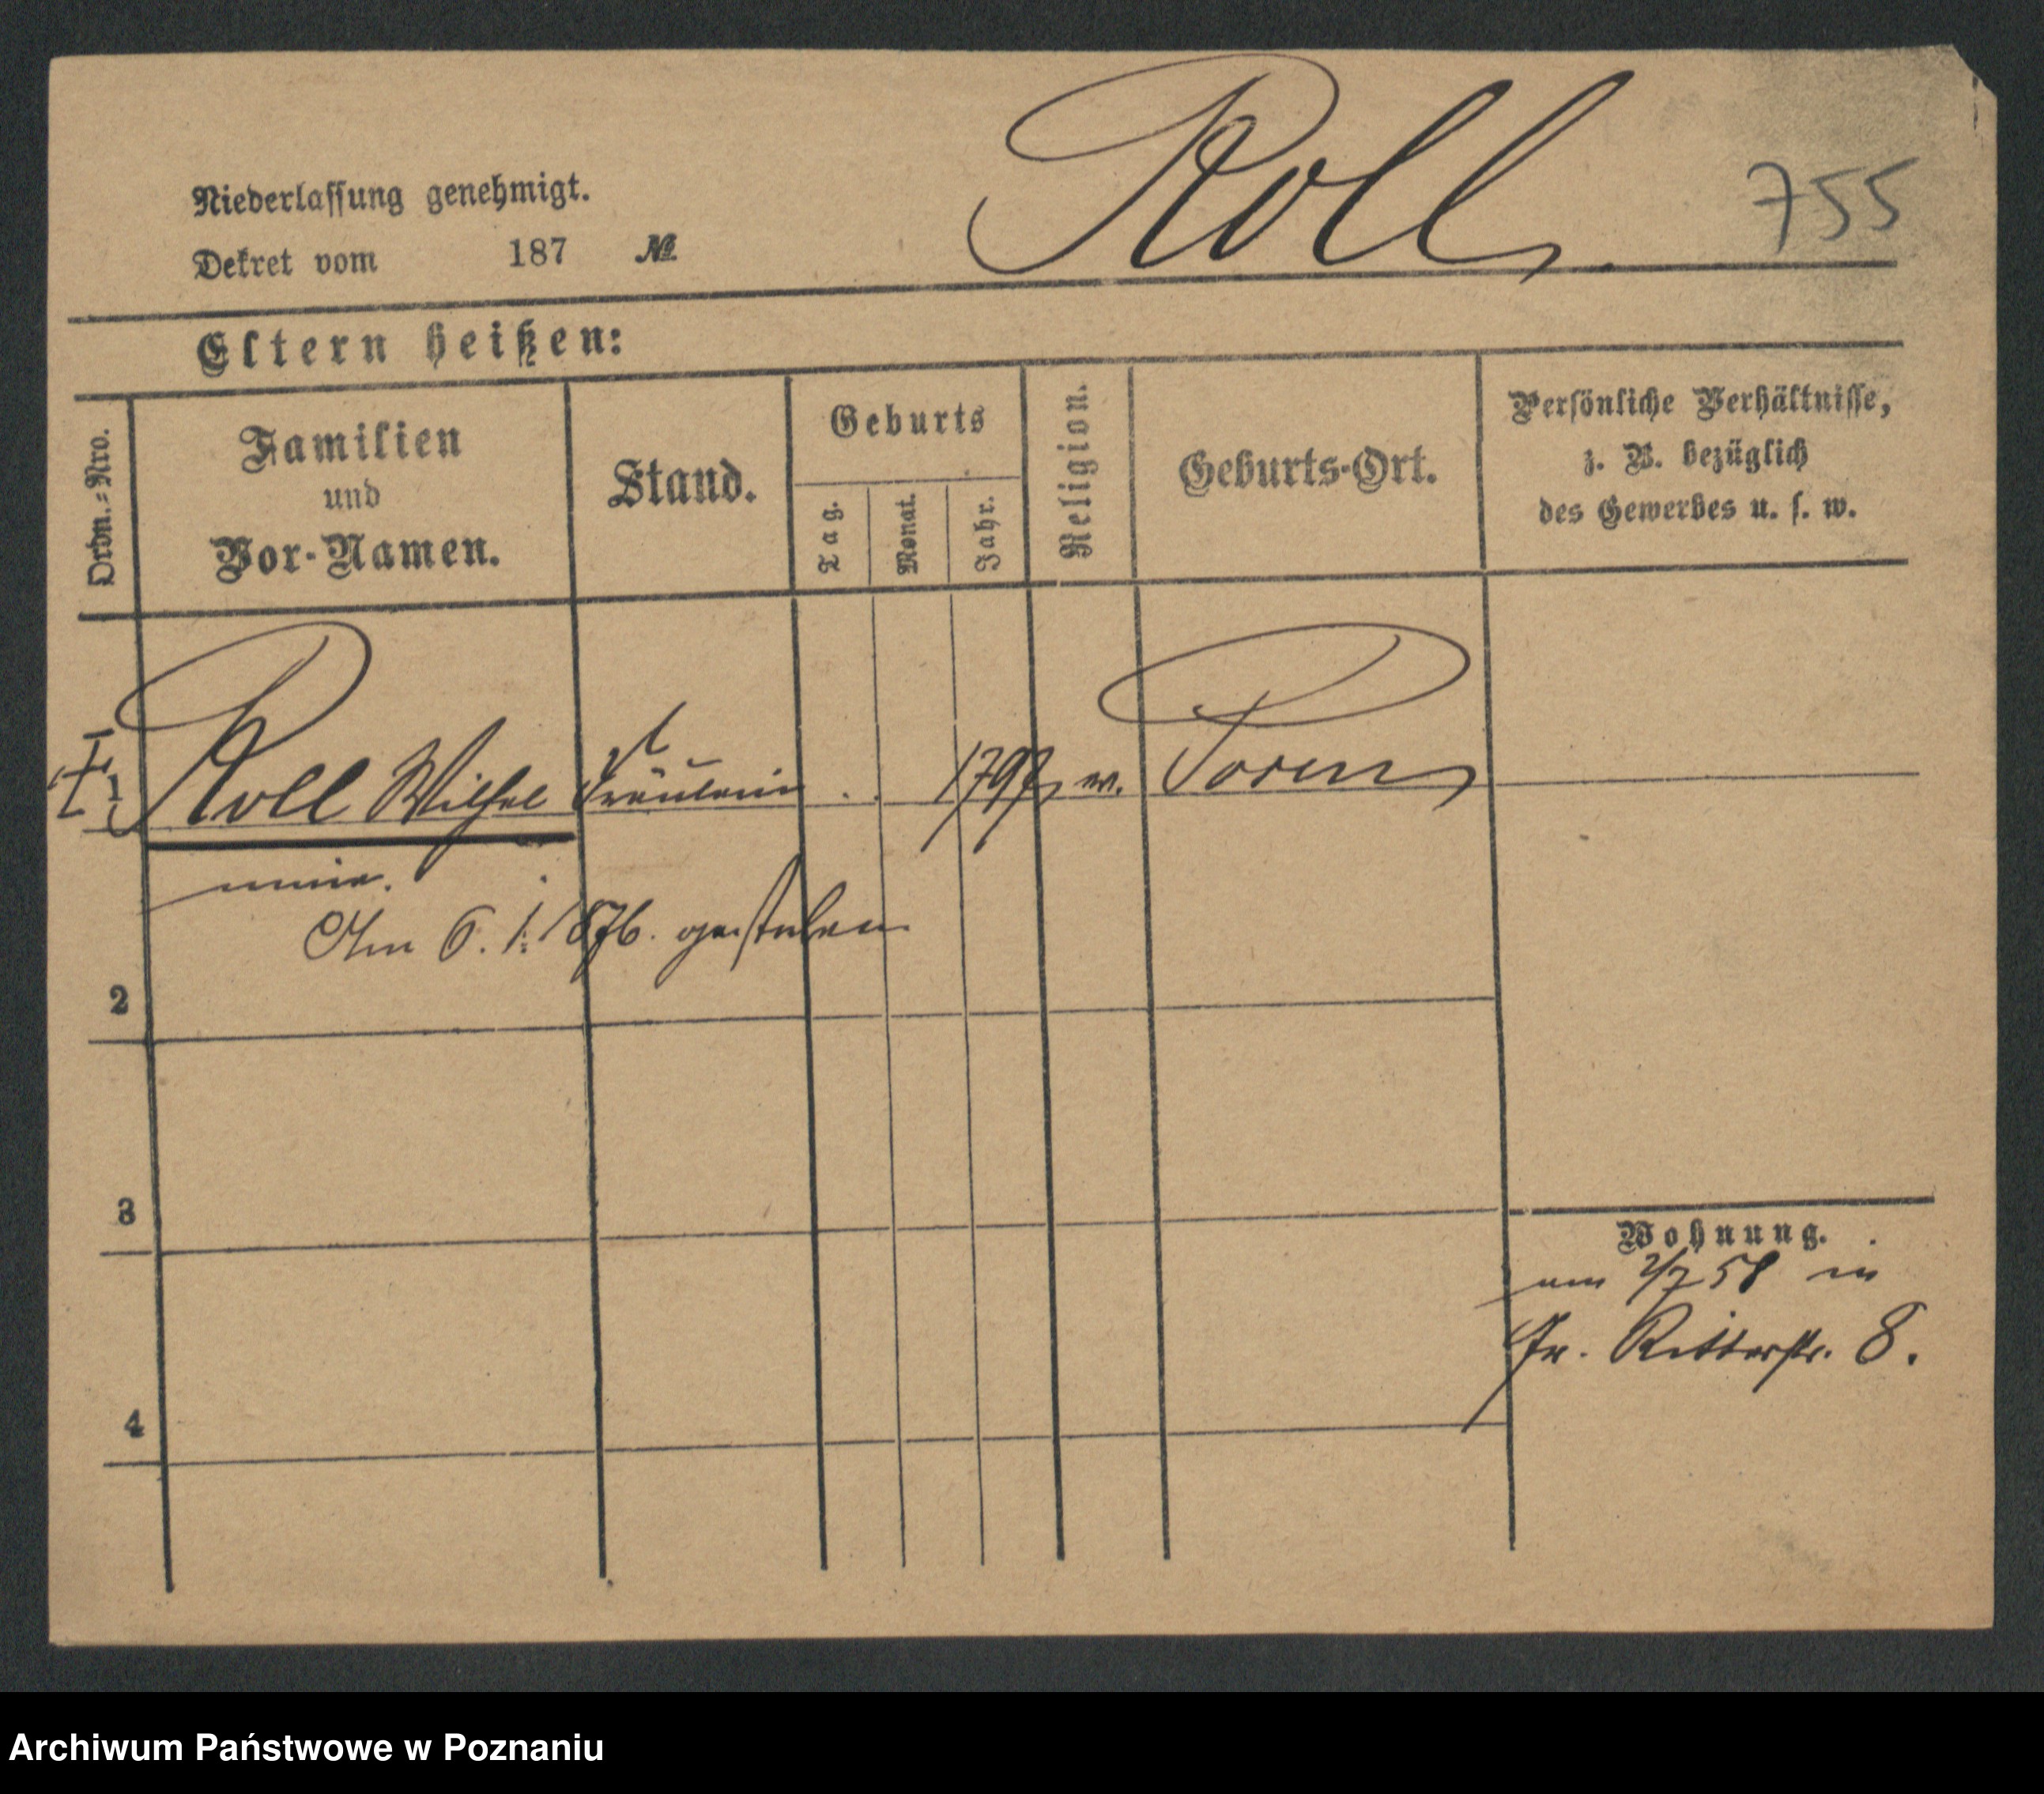 Roll
755
Niederlassung genehmigt.
Dekret vom 187 №
Eltern heißen:
Ordn.=Nro.
Familien
und
Vor-Namen.
Stand.
Geburts
Tag.
Monat.
Jahr.
Religion.
Geburts-Ort.
Persönliche Verhältnisse,
z. B. bezüglich
des Gewerbes u. s. w.
1 Roll Wilhel Fräulein . . 1797 Posen
mine.
Am 6. 1. 1876. gestorben
2
3
4
Wohnung.
am 2/7 58 in
Fr. Ritterstr. 8.
Archiwum Państwowe w Poznaniu